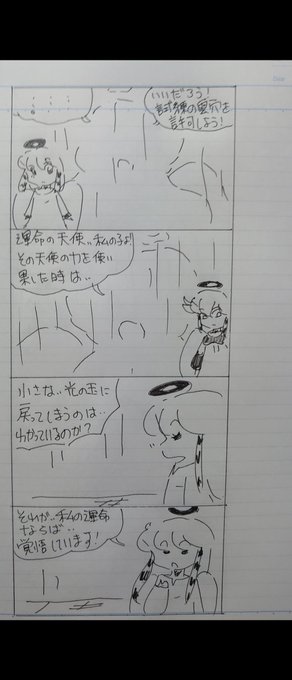 いいだろう!
試練の異界を
許可しよう!
……
運命の天使‥私の子よ!
その天使の力を使い
果した時は‥
小さな‥光の玉に
戻ってしまうのは‥
わかっているのか?
それが‥私の運命
ならば‥
覚悟しています!